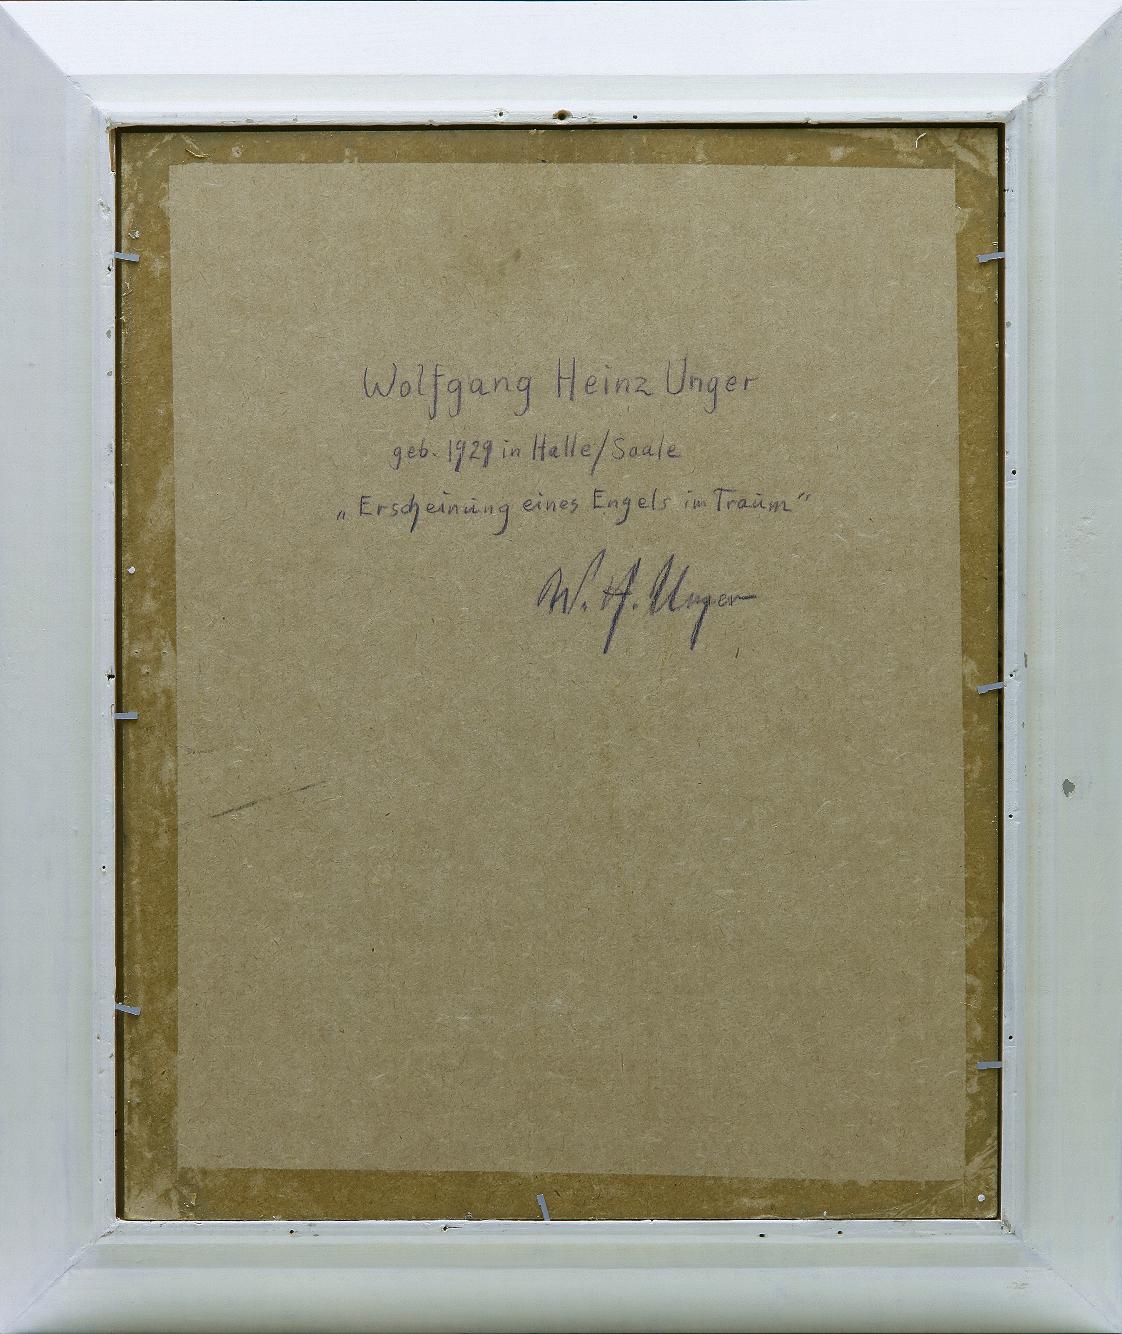 Wolfgang Heinz Unger
geb. 1929 in Halle/Saale
„Erscheinung eines Engels im Traum“
W. H. Unger